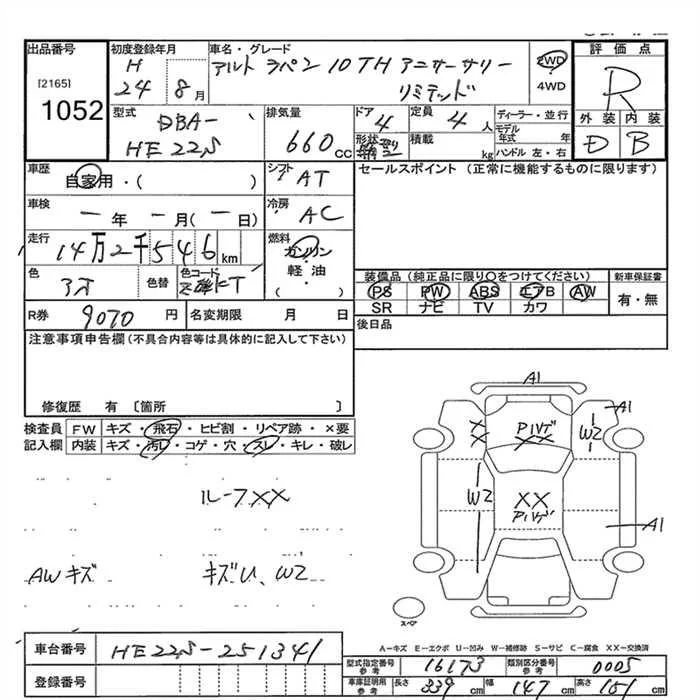 出品番号
[2165]
1052
初度登録年月
H
24 8月
車名・グレード
アルト ラパン 10TH アニバーサリー
リミテッド
2WD
4WD
評価点
R
外装 内装
D B
型式
DBA-
HE22S
排気量
660 cc
ドア
4
形状
定員
4 人
積載
kg
ディーラー・並行
モデル年式 年
ハンドル 左・右
車歴
自家用・( )
シフト
AT
車検
ー年ー月(ー日)
冷房
AC
走行
14万2千546km
燃料
ガソリン
軽油
( )
色
色替
色コード
R券 9070 円
名変期限 月 日
セールスポイント (正常に機能するものに限ります)
装備品(純正品に限り○をつけてください)
PS PW ABS エアB AW
SR ナビ TV カワ
新車保証書
有・無
後日品
注意事項申告欄(不具合内容等は具体的に記入して下さい)
修復歴 有 〔箇所 〕
検査員
記入欄
FW キズ・飛石・ヒビ割・リペア跡・×要
内装 キズ・汚レ・コゲ・穴・スレ・キレ・破レ
ルーフXX
AWキズ
キズU、W2
A1
A1
X
X
PイVT"
XX
W2
W2
XX
PイVT"
A1
スペア
A-キズ E-エクボ U-凹み W-補修跡 S-サビ C-腐食 XX-交換済
車台番号 HE22S-251341
登録番号
型式指定番号
参考
16173
類別区分番号
参考
0005
車庫証明用
参考
長さ 339cm 幅 147cm 高さ 151cm